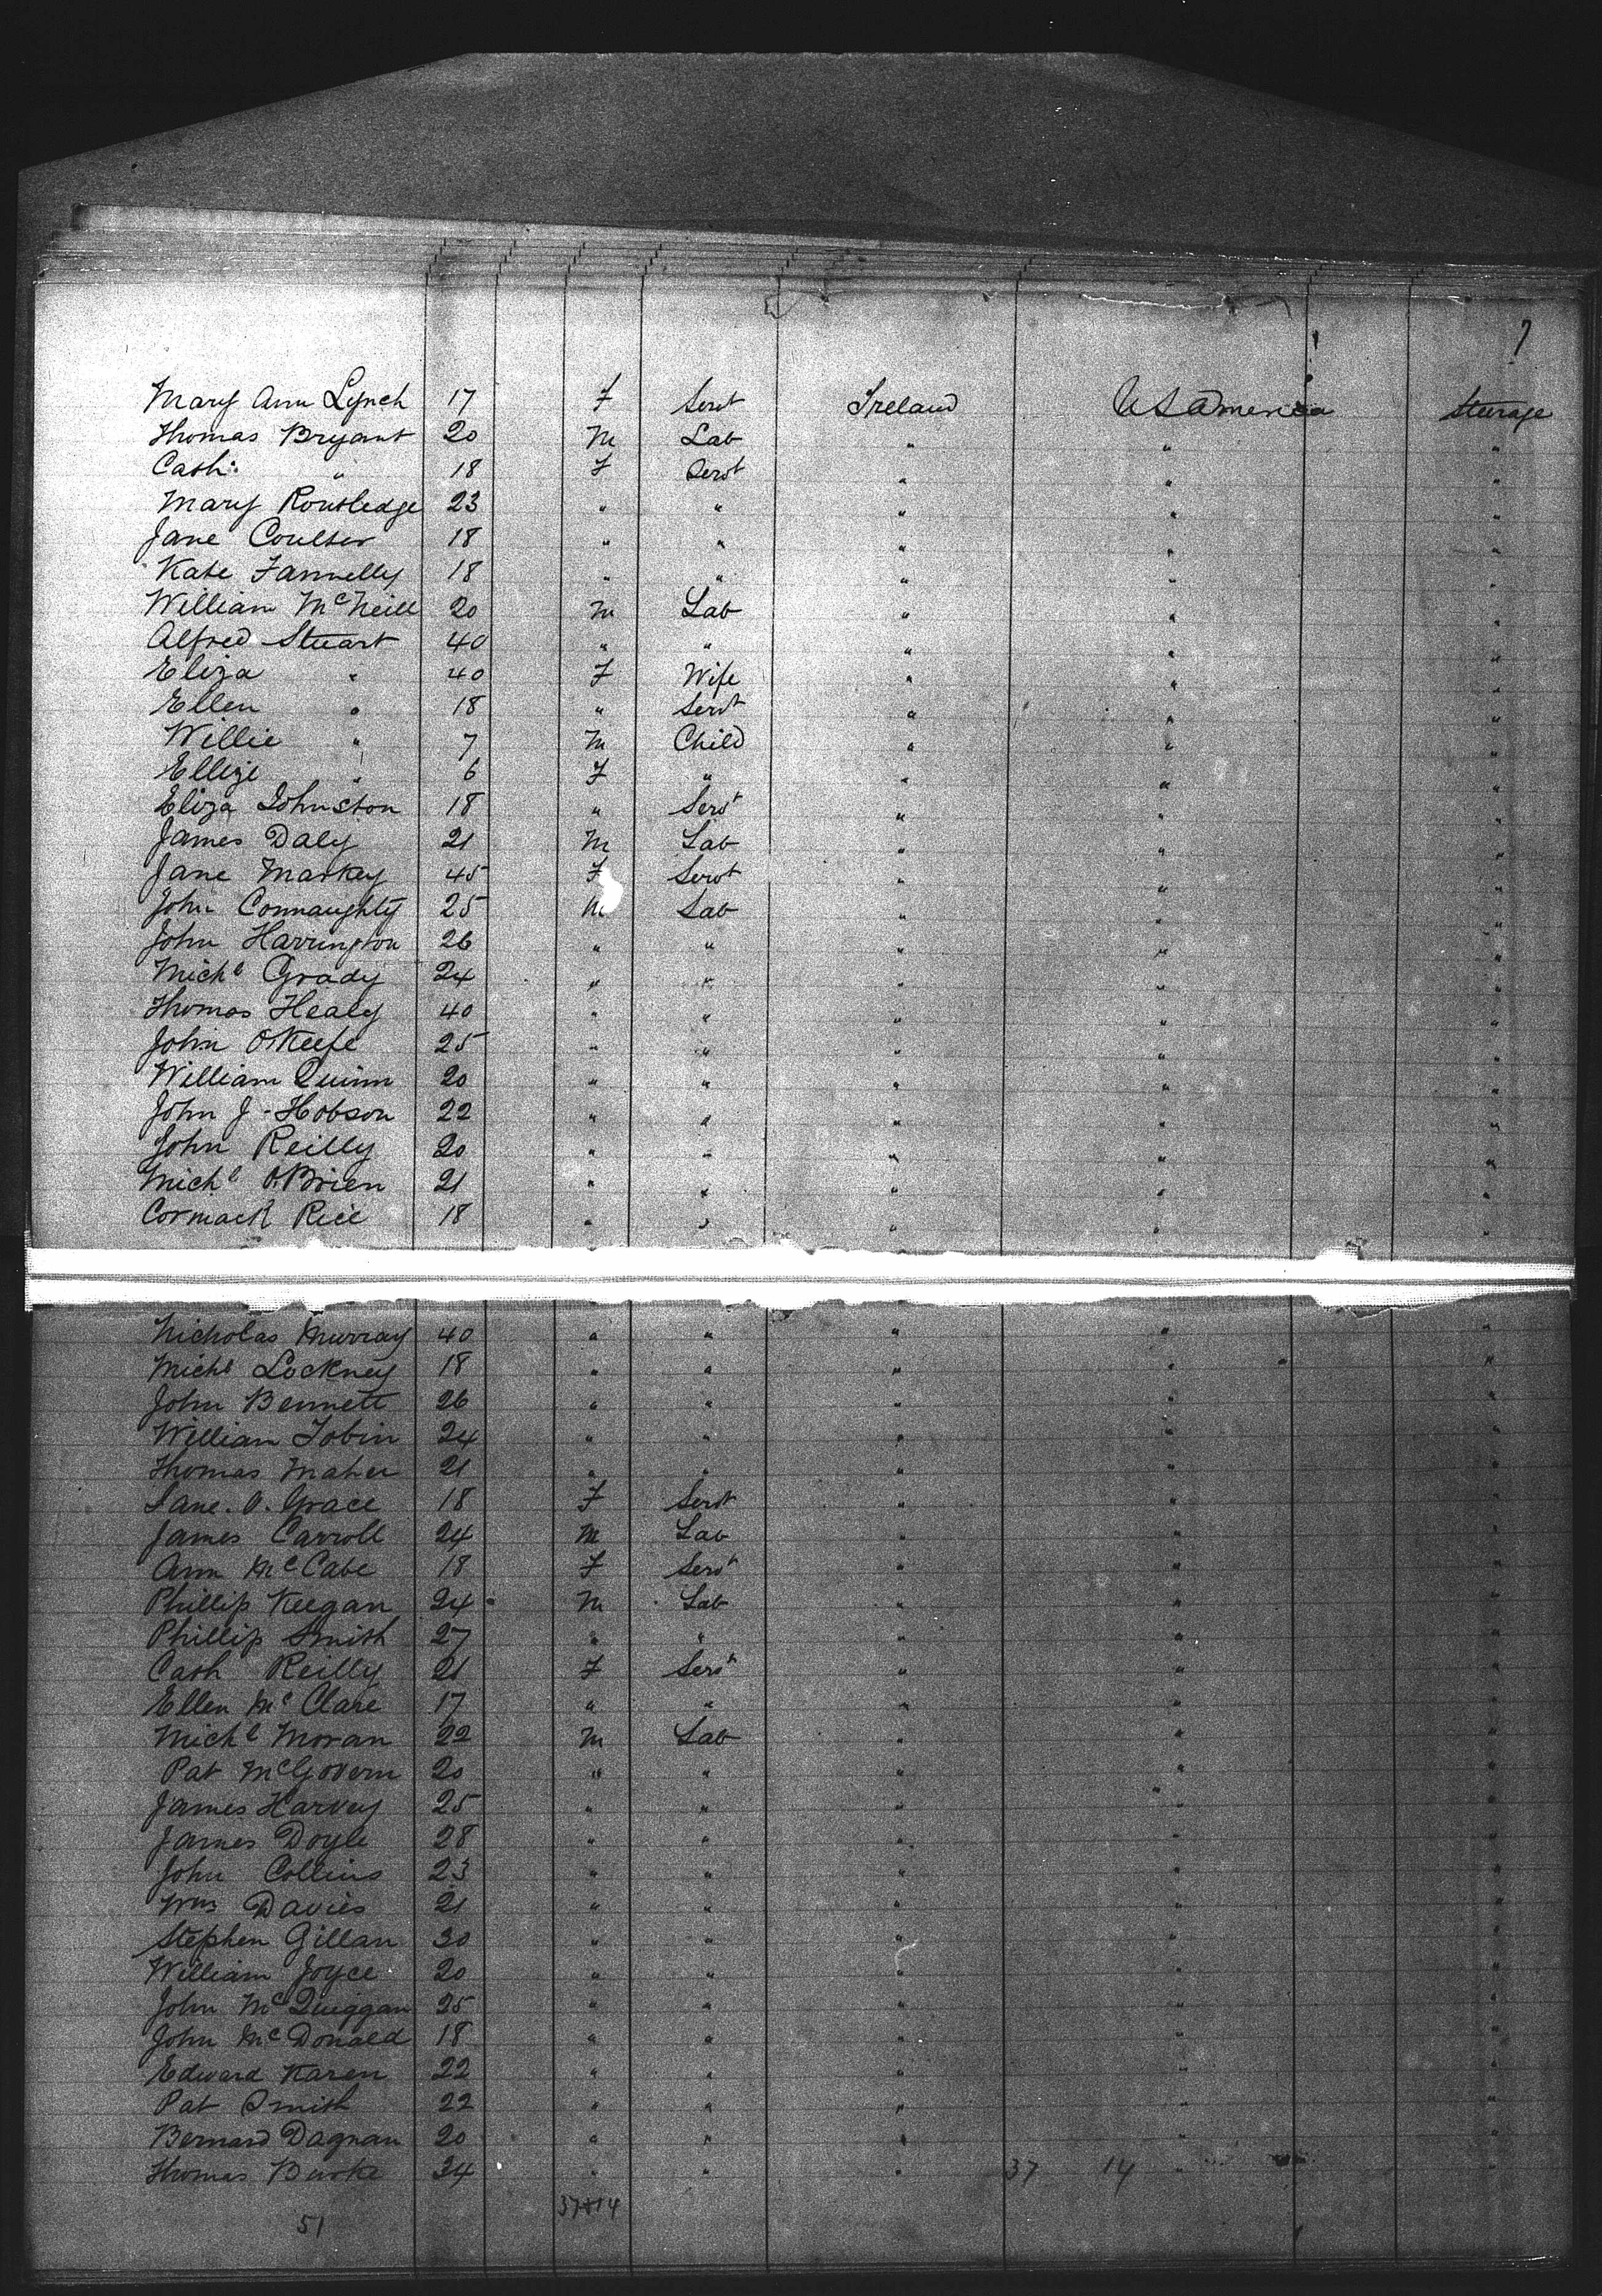 7
Mary Ann Lynch 17 F Servt Ireland U S America Steerage
Thomas Bryant 20 M Lab " " "
Cath: " 18 F Servt " " "
Mary Routledge 23 " " " " "
Jane Coulter 18 " " " " "
Kate Fannelly 18 " " " " "
William McNeill 20 M Lab " " "
Alfred Stuart 40 " " " " "
Eliza " 40 F Wife " " "
Ellen " 18 " Servt " " "
Willie " 7 M Child " " "
Ellize " 6 F " " " "
Eliza Johnston 18 " Servt " " "
James Daly 21 M Lab " " "
Jane Markey 45 F Servt " " "
John Connaughty 25 M Lab " " "
John Harrington 26 " " " " "
Michl Grady 24 " " " " "
Thomas Healy 40 " " " " "
John O'Keefe 25 " " " " "
William Quinn 20 " " " " "
John J. Hobson 22 " " " " "
John Reilly 20 " " " " "
Michl O'Brien 21 " " " " "
Cormack Rice 18 " " " " "
Nicholas Murray 40 " " " " "
Michl Lockney 18 " " " " "
John Bennett 26 " " " " "
William Tobin 24 " " " " "
Thomas Maher 21 " " " " "
Jane. O. Grace 18 F Servt " " "
James Carroll 24 M Lab " " "
Ann McCabe 18 F Servt " " "
Phillip Keegan 24 M Lab " " "
Phillip Smith 27 " " " " "
Cath Reilly 21 F Servt " " "
Ellen McClare 17 " " " " "
Michl Moran 22 M Lab " " "
Pat McGovern 20 " " " " "
James Harvey 25 " " " " "
James Doyle 28 " " " " "
John Collins 23 " " " " "
Wm Davies 21 " " " " "
Stephen Gillan 30 " " " " "
William Joyce 20 " " " " "
John McQuiggan 25 " " " " "
John McDonald 18 " " " " "
Edward Karen 22 " " " " "
Pat Smith 22 " " " " "
Bernard Dagnan 20 " " " " "
Thomas Burke 24 " " " 37 14 " "
51 37+14